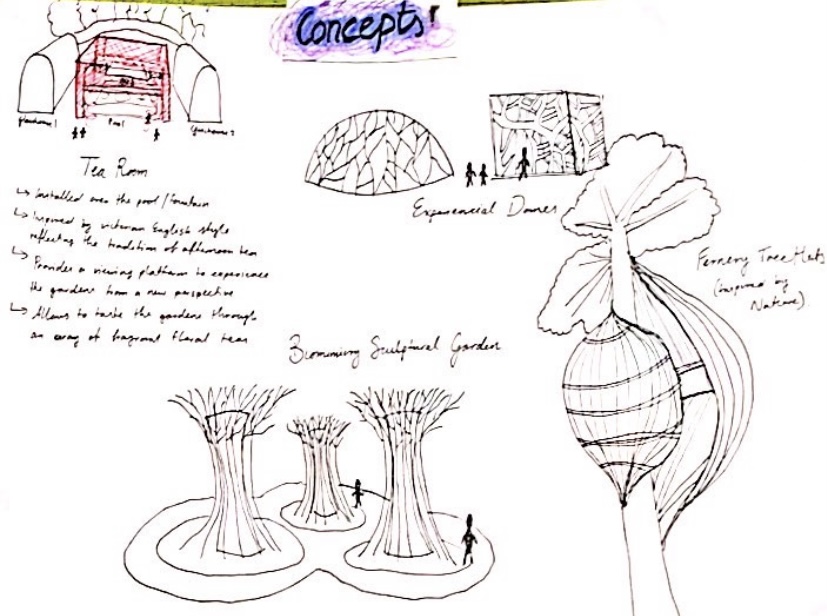 Concepts
Glasshouse 1
Pool
Glasshouse 2
Tea Room
↳ Installed over the pool / fountain
↳ Inspired by victorian English style
reflecting the tradition of afternoon tea
↳ Provides a viewing platform to experience
the gardens from a new perspective
↳ Allows to taste the gardens through
an array of fragrant floral teas
Experiencial Domes
Fernery Tree Huts
(inspired by
Nature).
Biomimicry Sculptural Garden